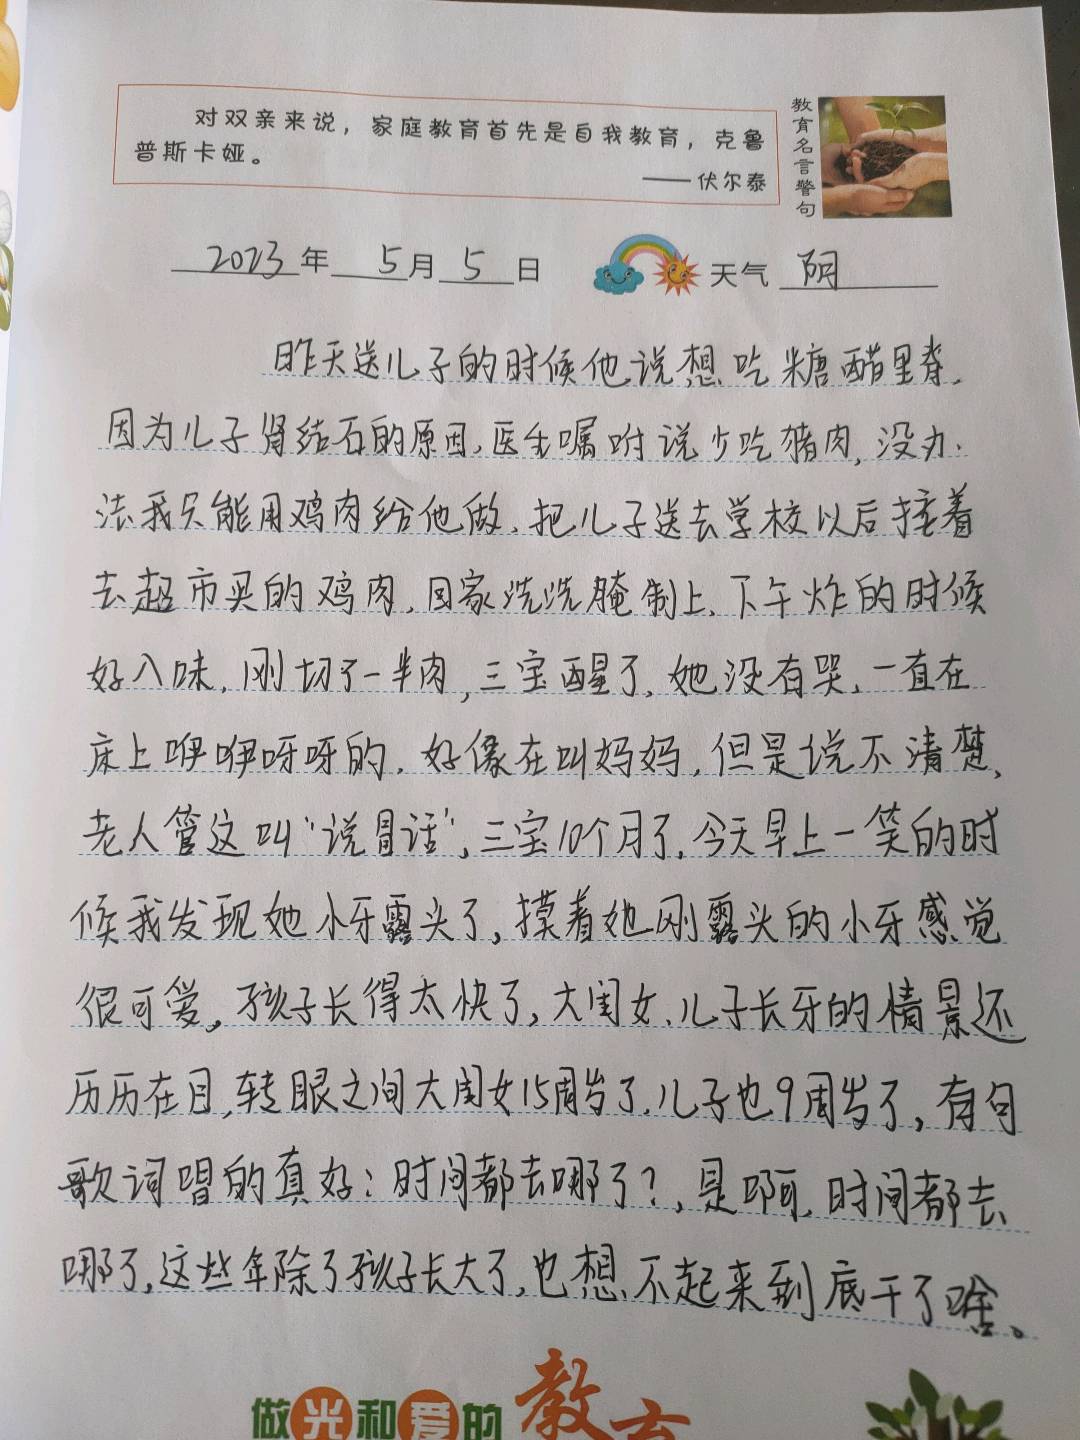 对双亲来说，家庭教育首先是自我教育，克鲁
普斯卡娅。
——伏尔泰
教育名言警句
2023年5月5日 天气 阴
昨天送儿子的时候他说想吃糖醋里脊，
因为儿子肾结石的原因，医生嘱咐说少吃猪肉，没办
法我只能用鸡肉给他做，把儿子送去学校以后接着
去超市买的鸡肉，回家洗洗腌制上，下午炸的时候
好入味，刚切了一半肉，三宝醒了，她没有哭，一直在
床上咿咿呀呀的，好像在叫妈妈，但是说不清楚，
老人管这叫“说冒话”，三宝10个月了，今天早上一笑的时
候我发现她小牙露头了，摸着她刚露头的小牙感觉
很可爱，孩子长得太快了，大闺女、儿子长牙的情景还
历历在目，转眼之间大闺女15周岁了，儿子也9周岁了，有句
歌词唱的真好：时间都去哪了？，是啊，时间都去
哪了，这些年除了孩子长大了，也想不起来到底干了啥。
做光和爱的教育